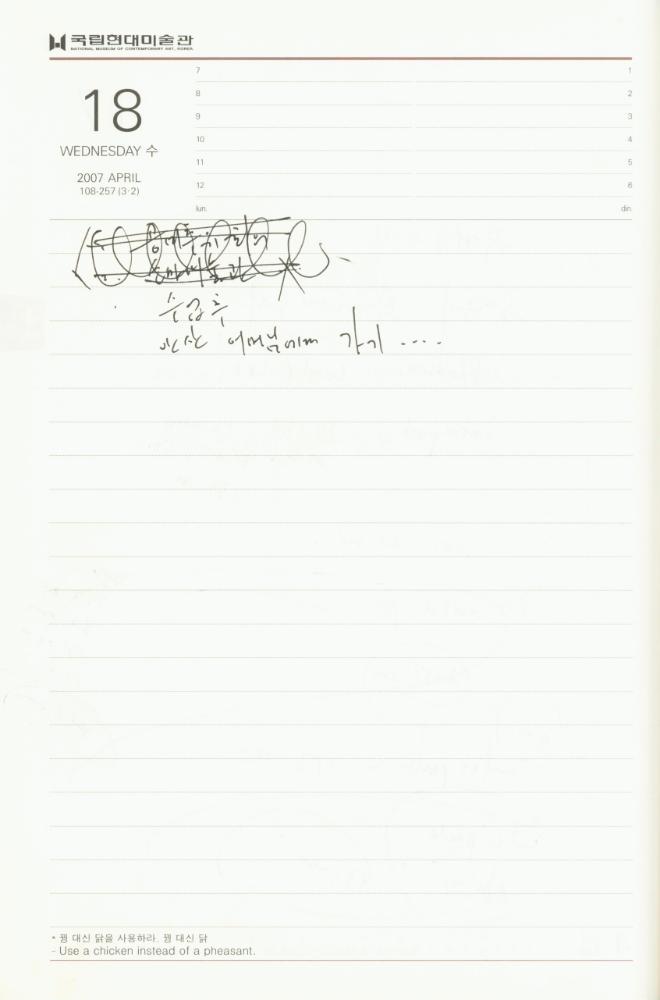 국립현대미술관
NATIONAL MUSEUM OF CONTEMPORARY ART, KOREA
18
WEDNESDAY 수
2007 APRIL
108-257 (3·2)
7
8
9
10
11
12
lun.
1
2
3
4
5
6
din.
수강후
어머님에께 가기 ....
* 꿩 대신 닭을 사용하라. 꿩 대신 닭
- Use a chicken instead of a pheasant.